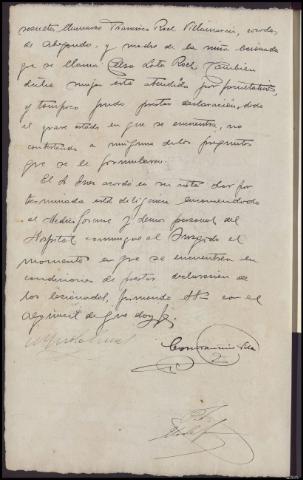 Francisca Roel Villanueva,
de Alejandro. y madre de la niña lesionada
que se llama Elisa Lota Roel. Tambien
dicha mujer está atendida por facultativos,
y tampoco pudo prestar declaración, dado
el grave estado en que se encuentra, no
contestando a ninguna de las preguntas
que se le formularon.
El Sr Juez acordó en su vista dar por
terminada esta diligencia encomendando
al Medico forense y demas personal del
Hospital comunique al Juzgado el
momento en que se encuentren en
condiciones de prestar declaracion
los lesionados, firmando Sª con el
de que doy fe.